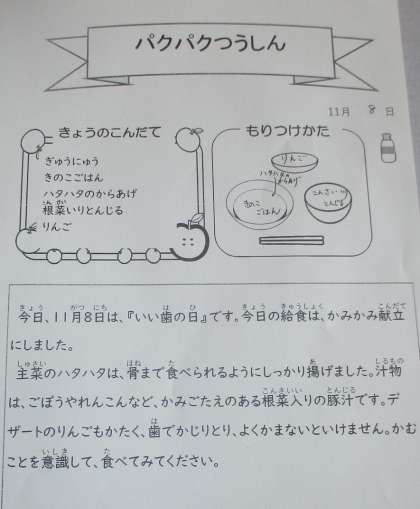 パクパクつうしん
11月 8 日
きょうのこんだて
ぎゅうにゅう
きのこごはん
ハタハタのからあげ
根菜いりとんじる
りんご
もりつけかた
りんご
ハタハタの
からあげ
きのこ
ごはん
こんさいいり
とんじる
今日、11月8日は、『いい歯の日』です。今日の給食は、かみかみ献立
にしました。
主菜のハタハタは、骨まで食べられるようにしっかり揚げました。汁物
は、ごぼうやれんこんなど、かみごたえのある根菜入りの豚汁です。デ
ザートのりんごもかたく、歯でかじりとり、よくかまないといけません。かむ
ことを意識して、食べてみてください。